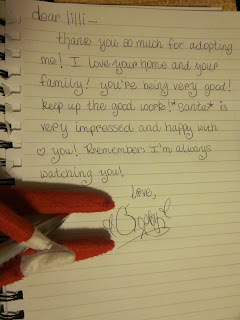 dear lilli—
thank you so much for adopting
me! I love your home and your
family! you're being very good!
keep up the good work! *santa* is
very impressed and happy with
♡ you! Remember: I'm always
watching you!
Love,